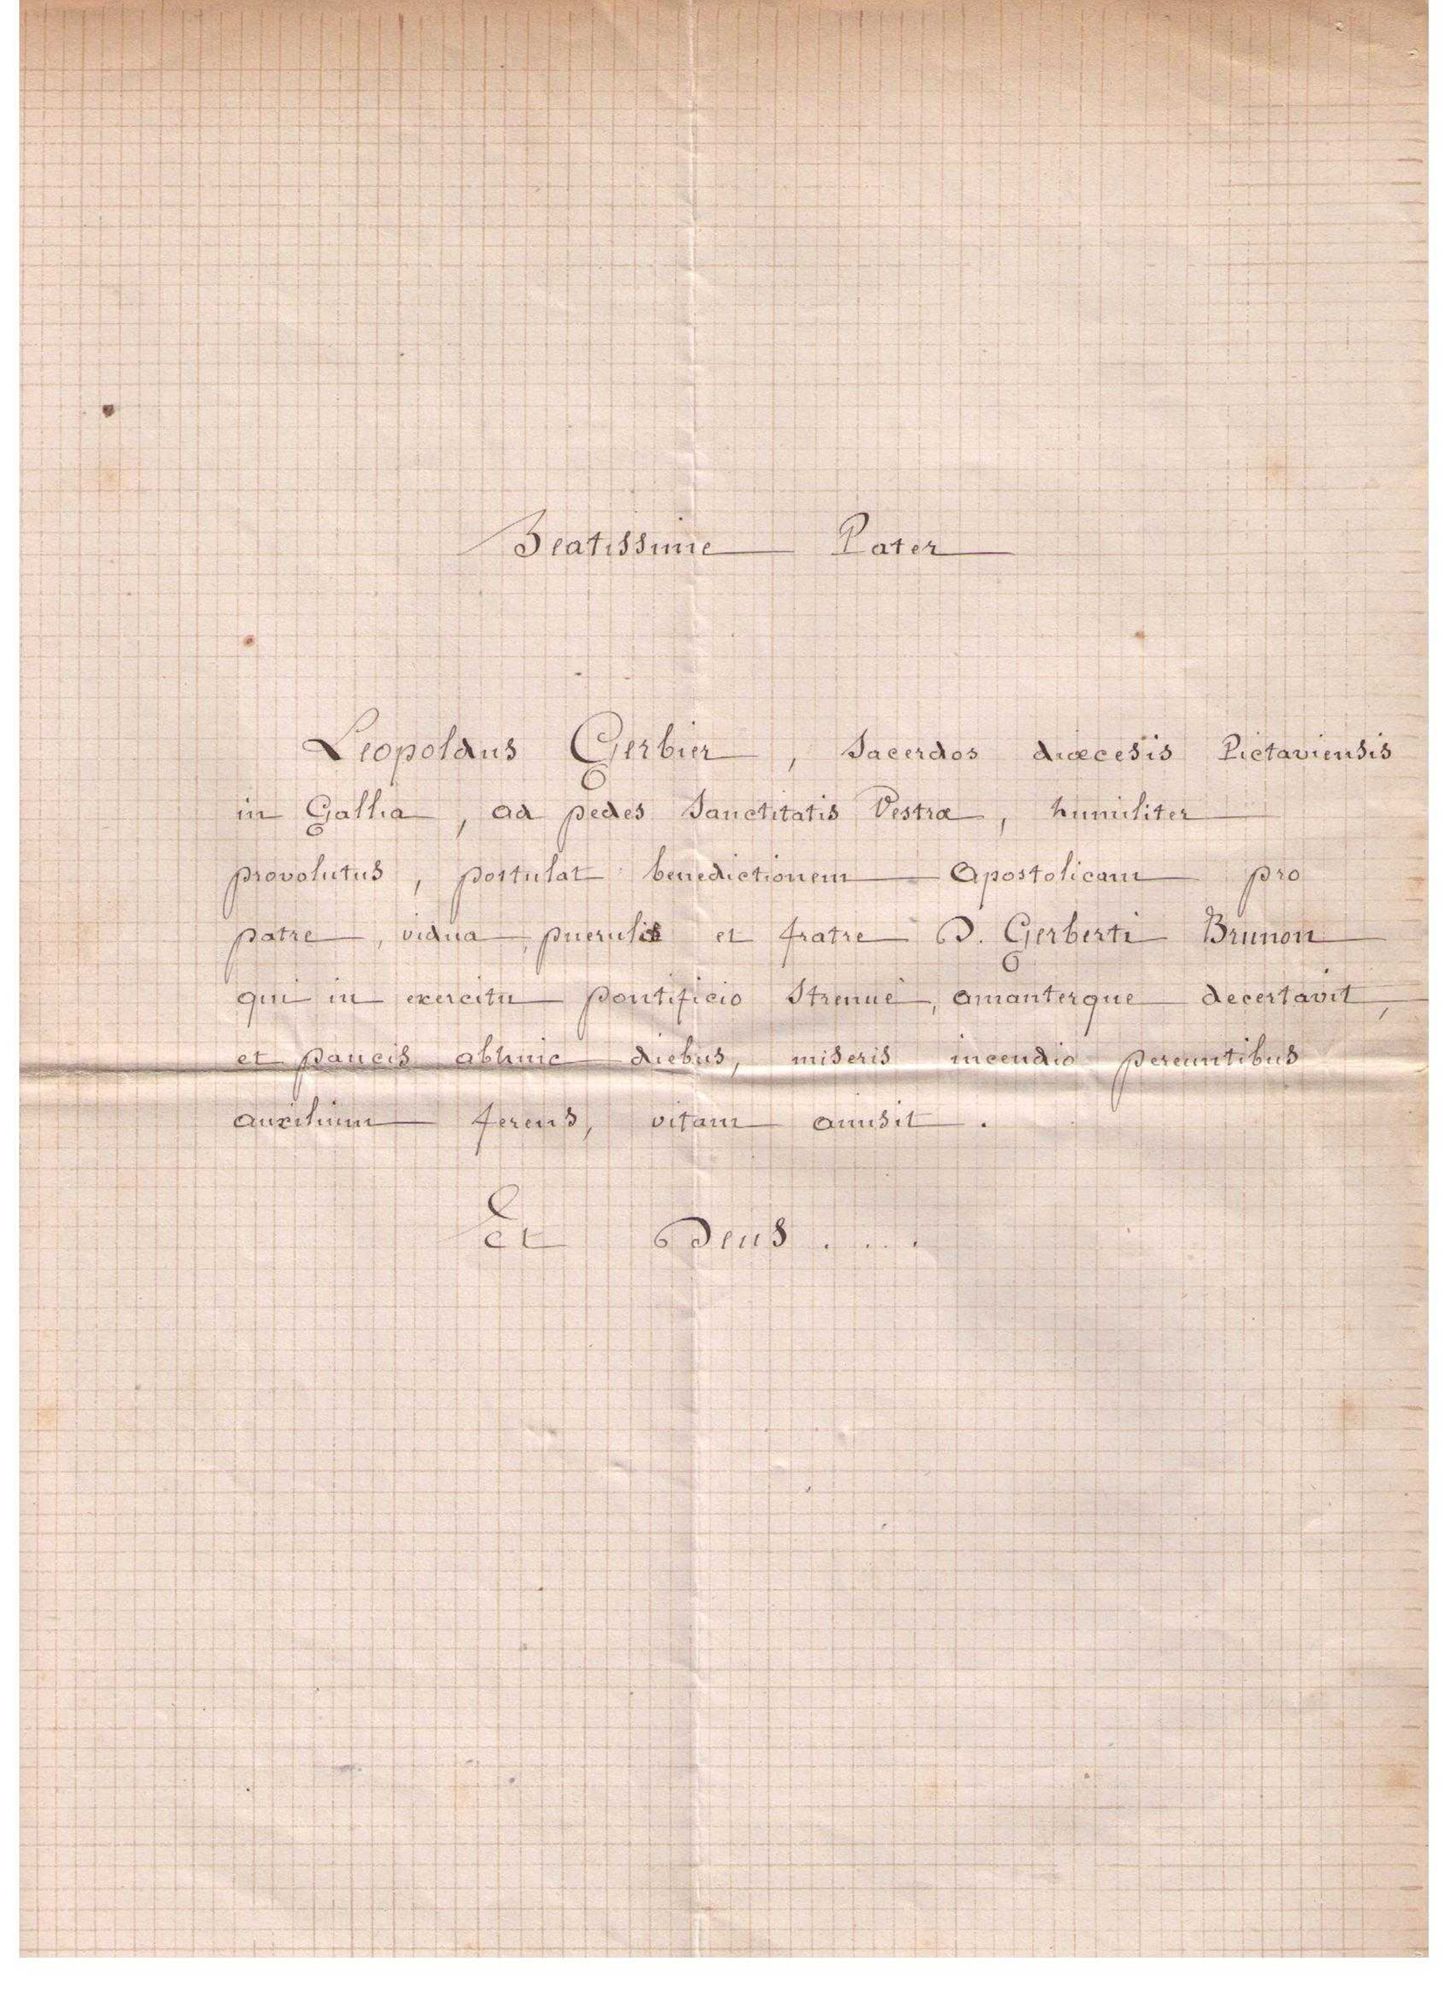 Beatissime Pater
Leopoldus Gerbier, Sacerdos diœcesis Pictaviensis
in Gallia, ad pedes Sanctitatis Vestræ, humiliter
provolutus, postulat benedictionem Apostolicam pro
patre, vidua, puerulis et fratre D. Gerberti Brunon
qui in exercitu pontificio strenuè, amanterque decertavit,
et paucis abhuic diebus, miseris incendio pereuntibus
auxilium ferens, vitam amisit.
Et Deus....